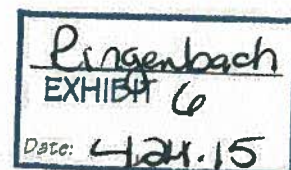 Pingenbach
EXHIBIT 6
Date: 4.24.15